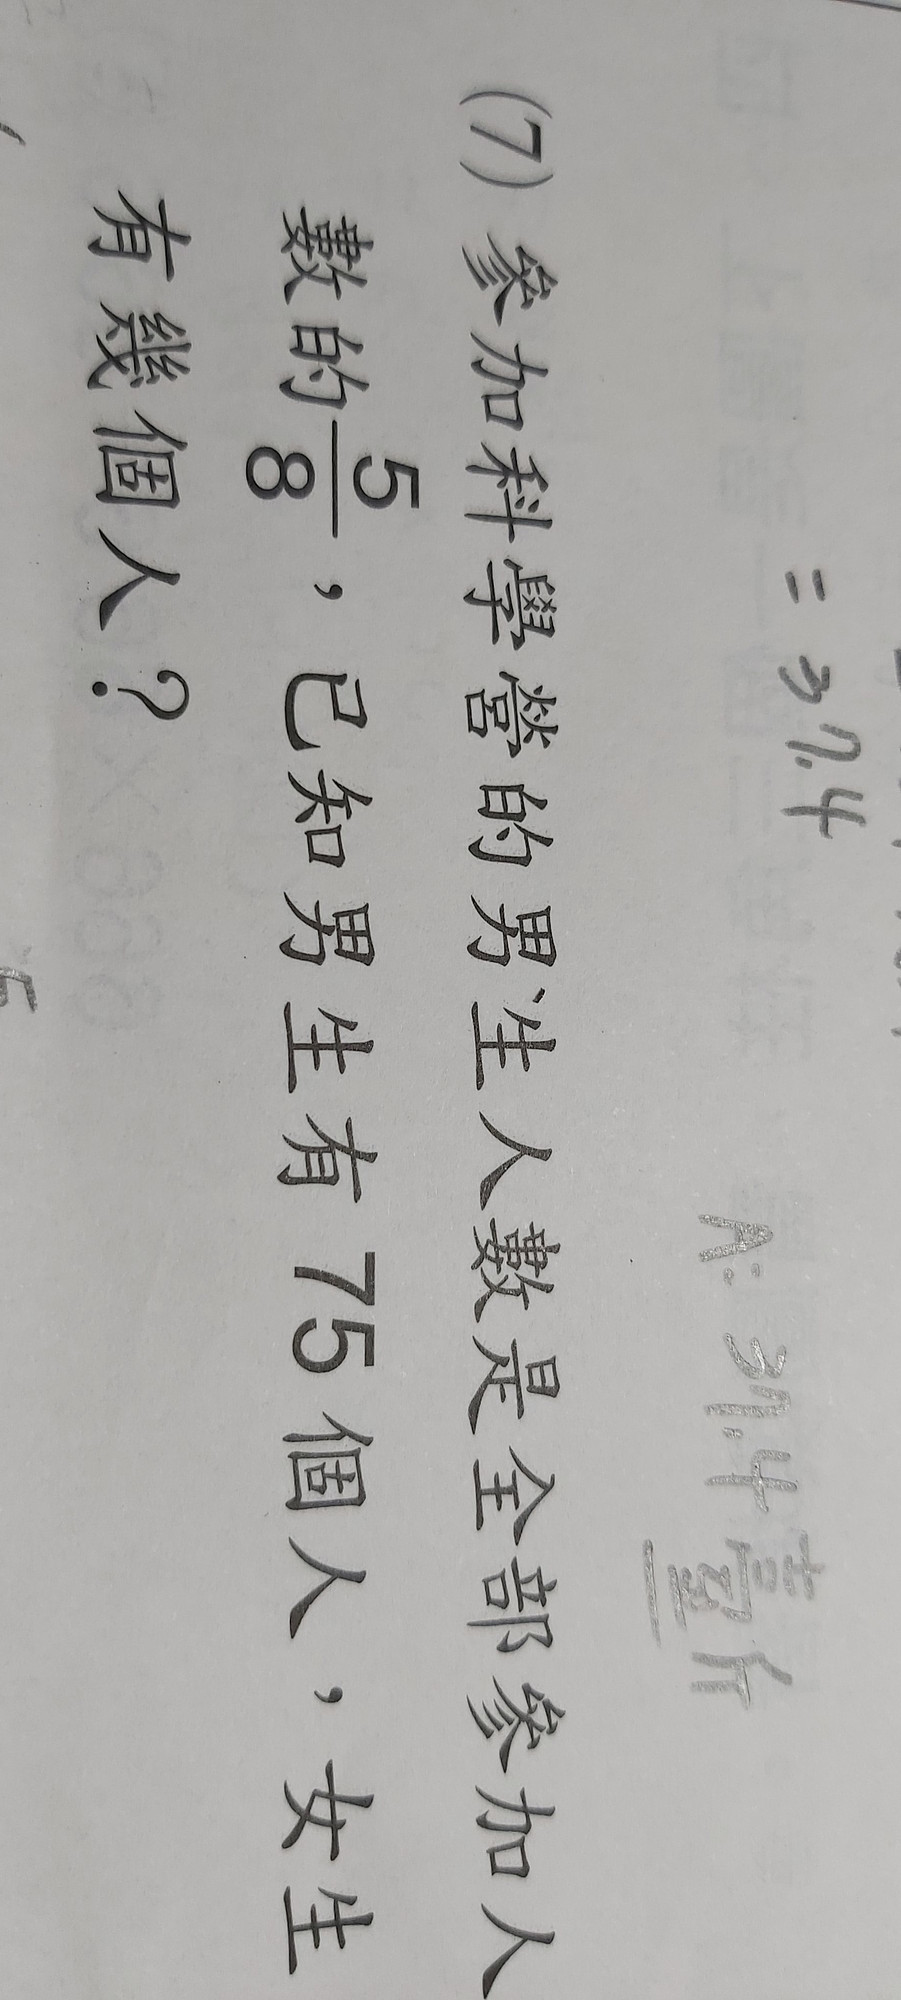 = 37.4
A: 37.4
(7) 參加科學營的男生人數是全部參加人
數的5/8，已知男生有 75 個人，女生
有幾個人？